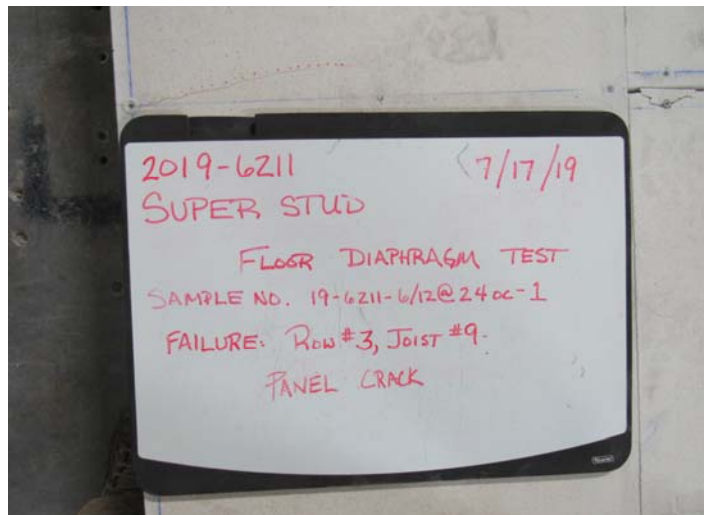 2019-6211 7/17/19
SUPER STUD
FLOOR DIAPHRAGM TEST
SAMPLE NO. 19-6211-6/12@24oc-1
FAILURE: ROW #3, JOIST #9.
PANEL CRACK